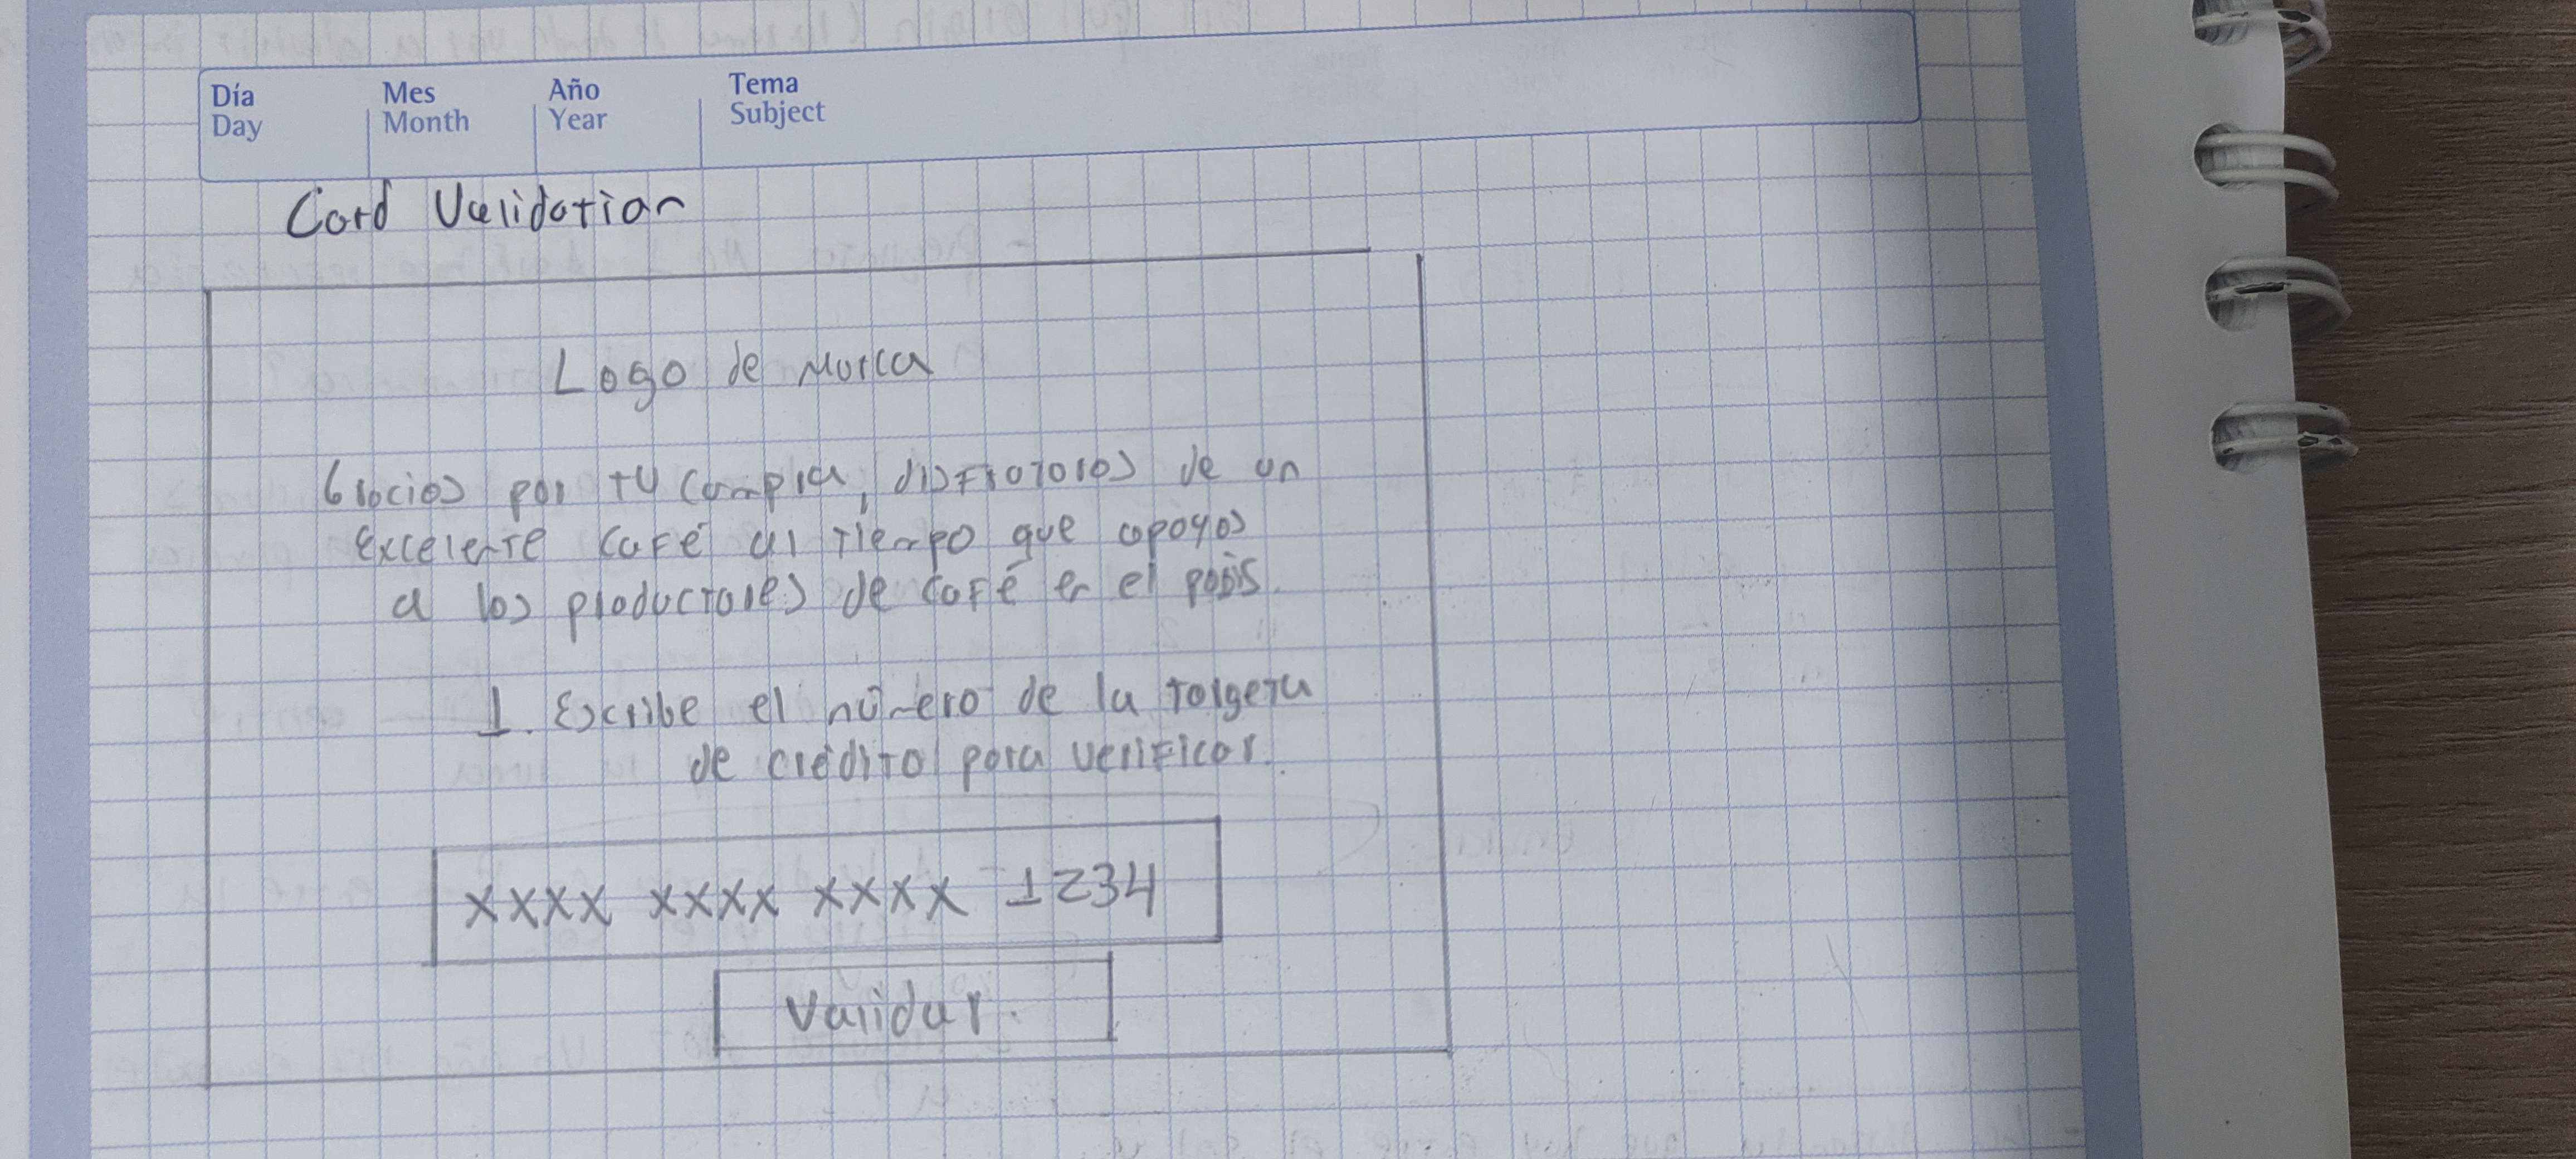 Día Mes Año Tema
Day Month Year Subject
Card Validation
Logo de Marca
Gracias por tu compra, disfrataras de un
Excelente café al tiempo que apoyas
a los productores de café en el país.
1. Escribe el número de la targeta
de crédito para verificar.
xxxx xxxx xxxx 1234
Validar.